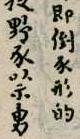 即倒豕形的
野豕以示勇